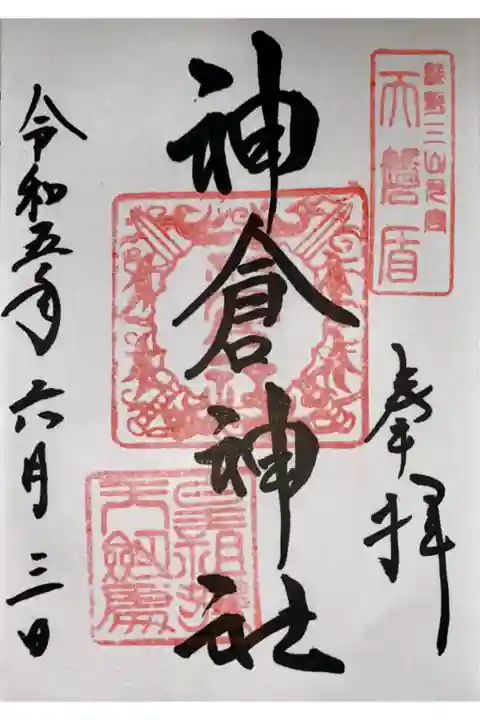 熊野三山元宮
天磐盾
奉拝
神倉神社
令和五年六月三日